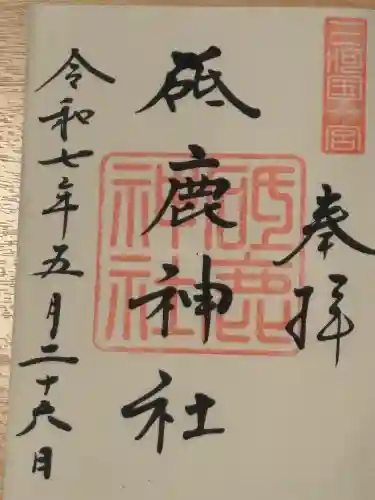 三河國一宮
奉拝
砥鹿神社
砥鹿
神社
令和七年五月二十六日